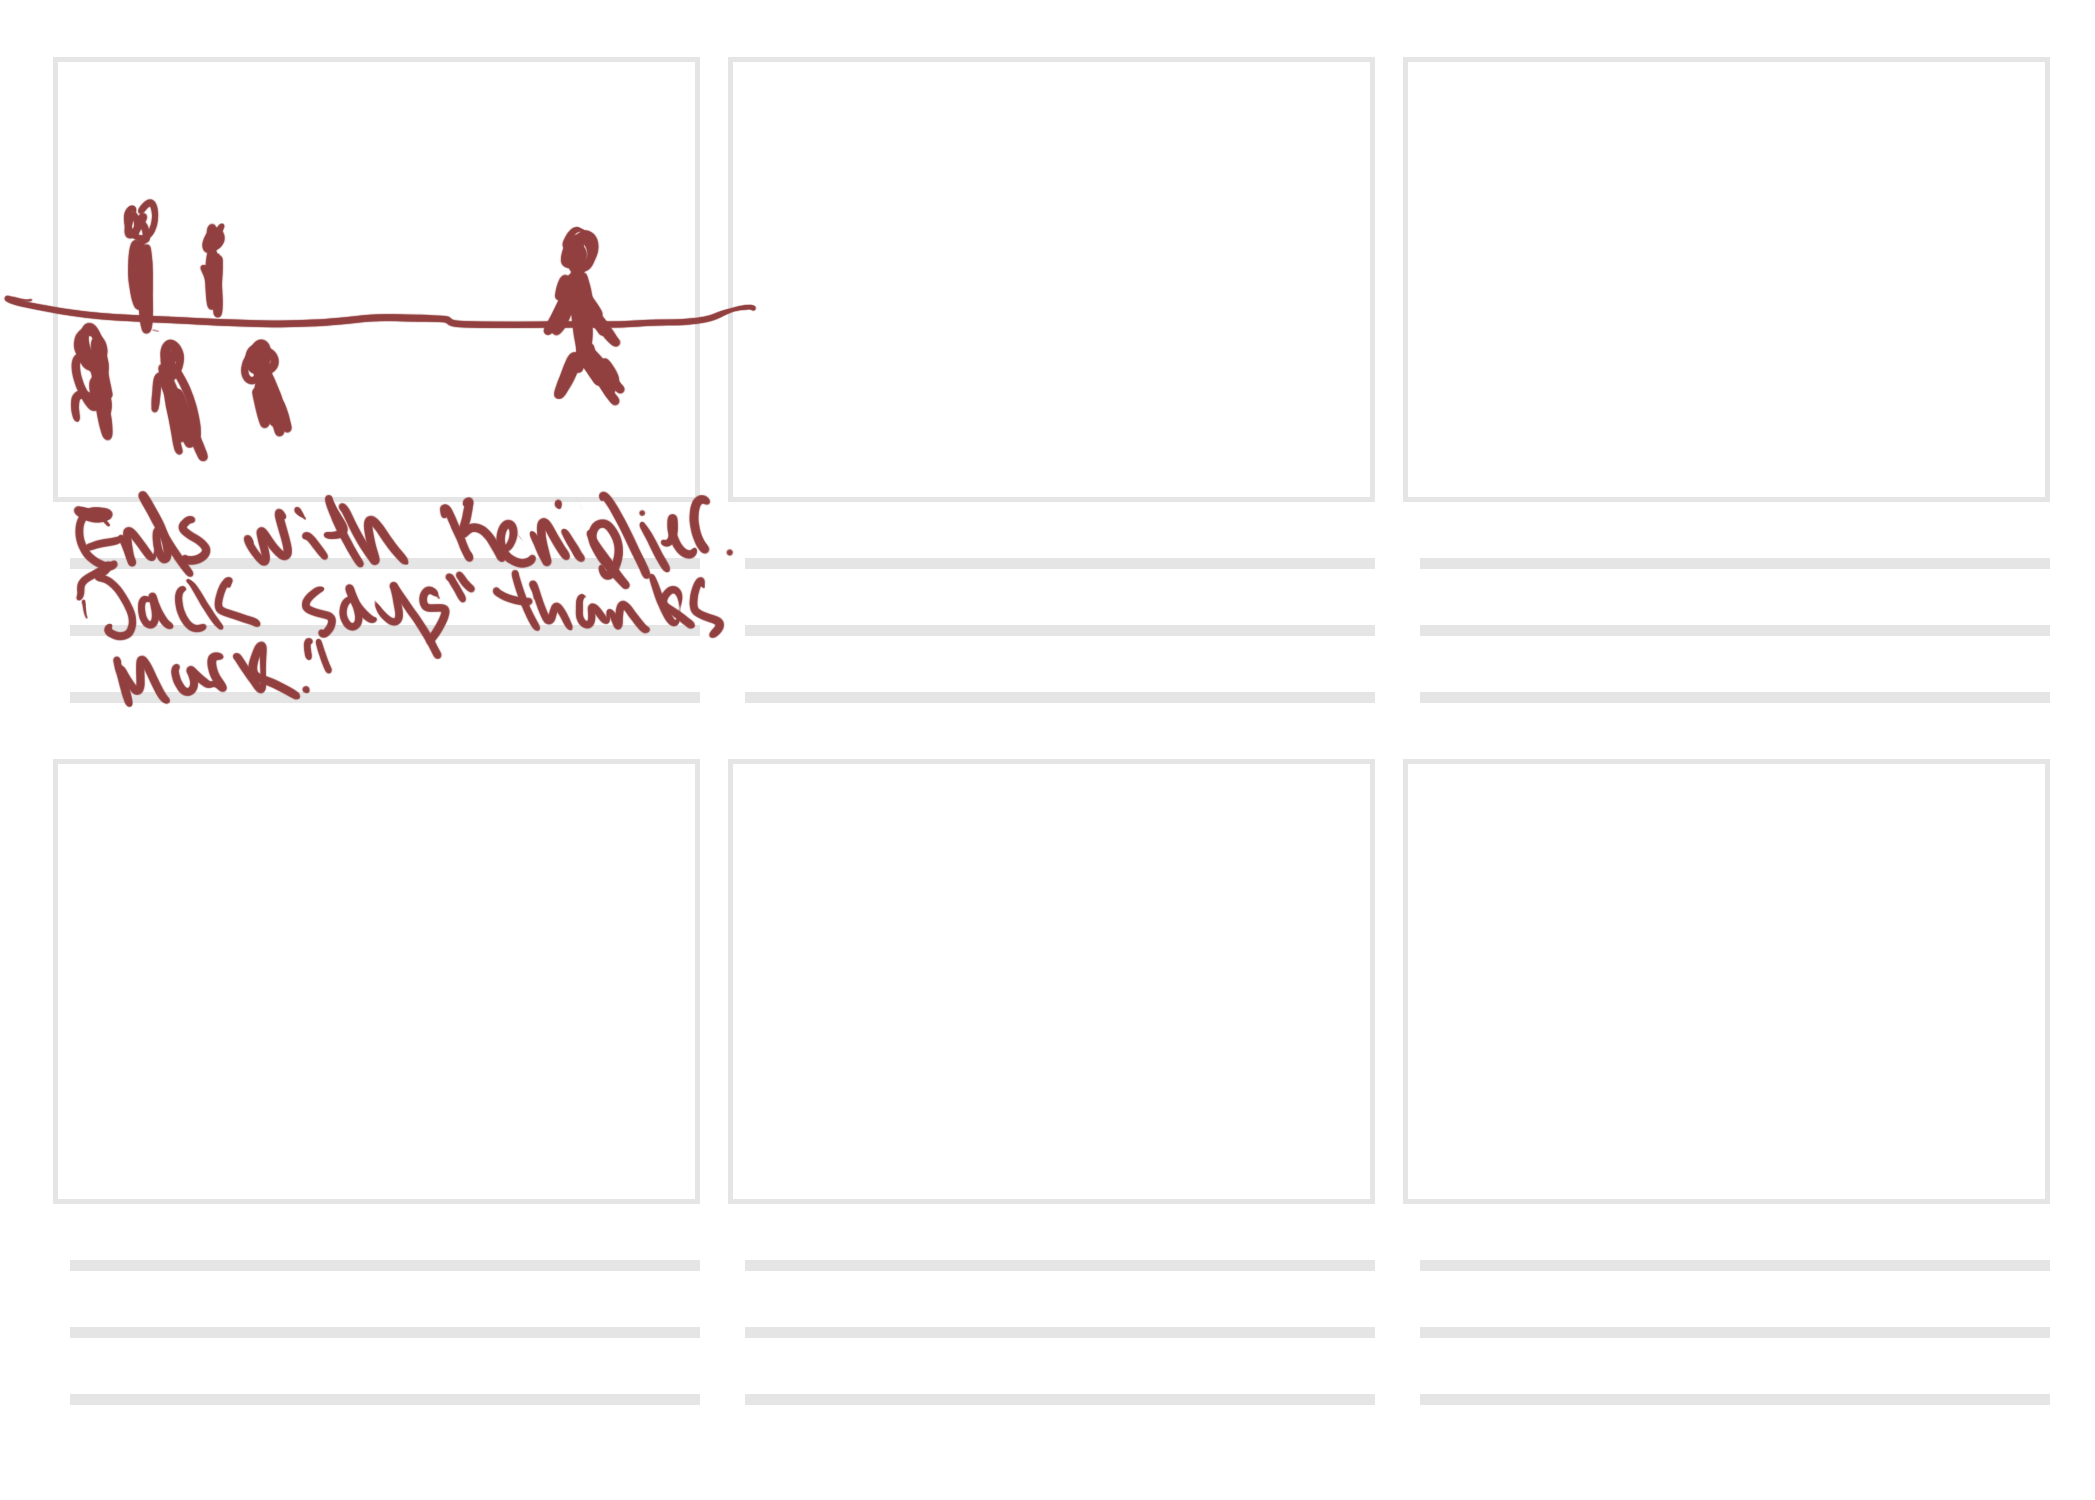 Ends with Keniplier.
Jack says "thanks
Mark."